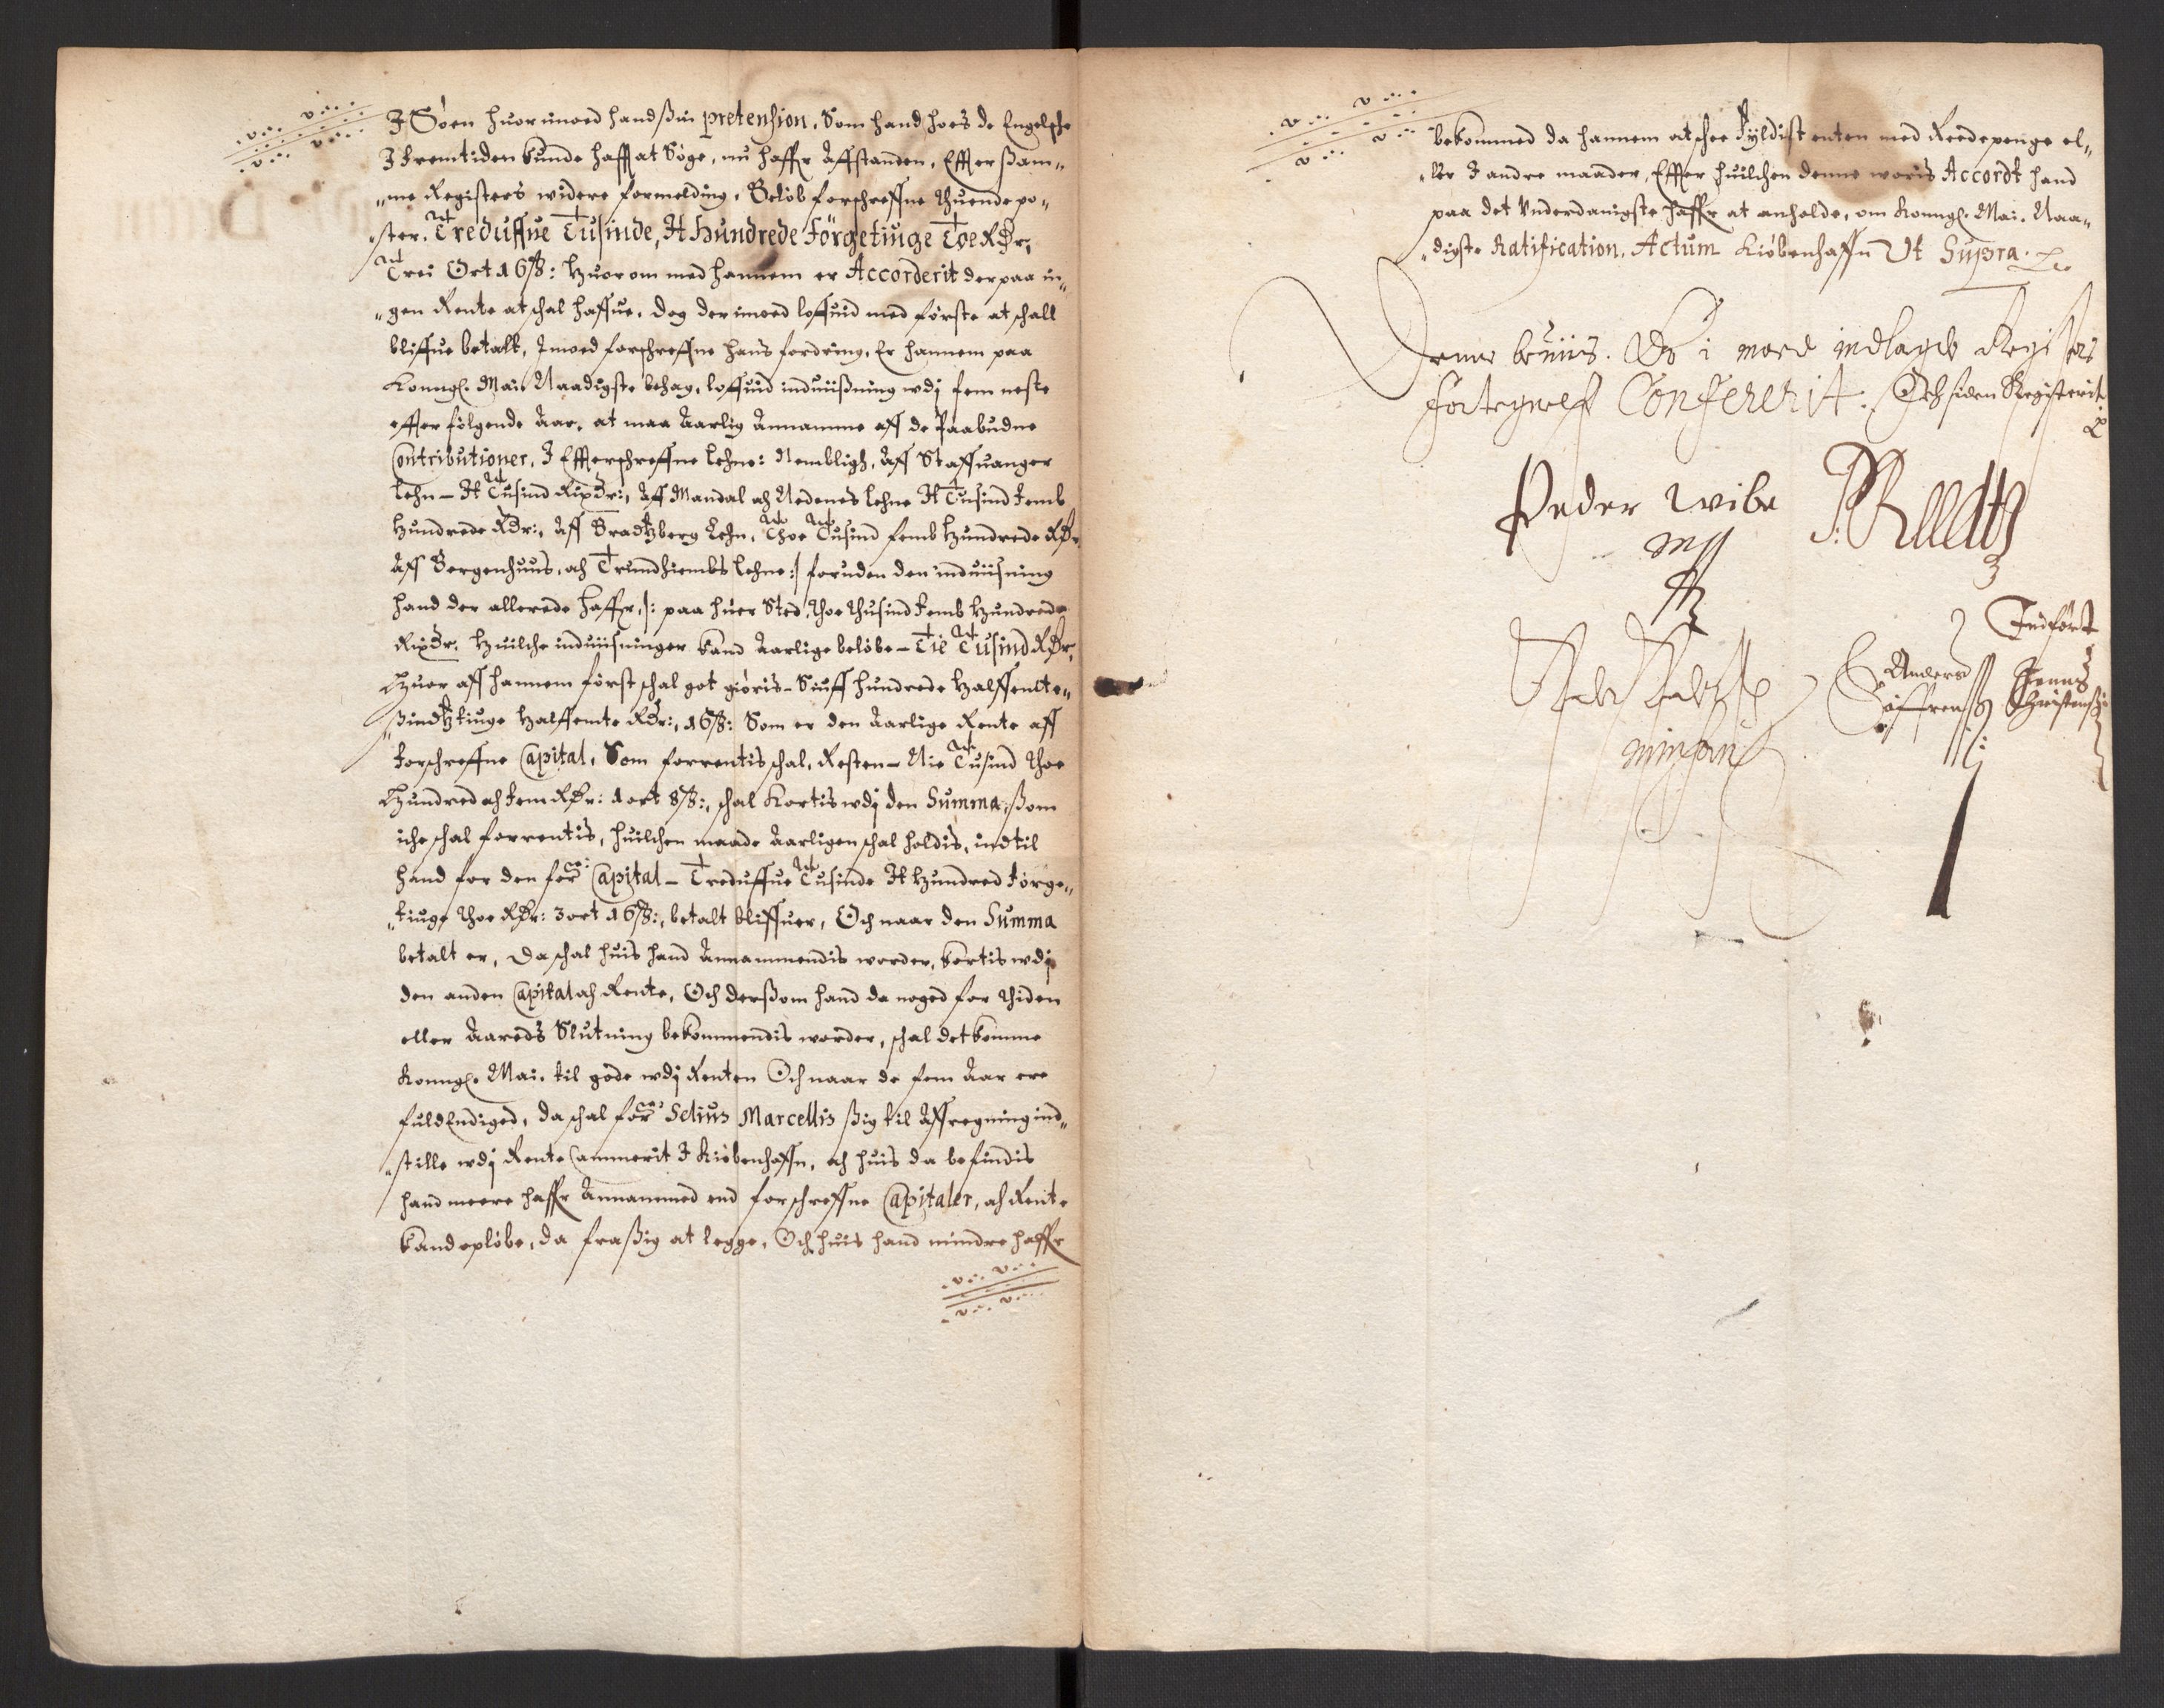 I Søen huor imoed hand ßin pretension, Som hand hoes de Engelsche
I fremtiden kunde haff at Søge, nu haffr Affstanden, Effter ßam„
„me Registers widere formelding, Beløb forschreffne thuende po„
„ster, Treduffue Tusinde, Et Hundrede Förgetiuge Toe RDr,
Trei Ort 16 ß: Huor om med hannem er Accorderit der paa in„
„gen Rente at schal haffue, dog der imoed loffuid med første at schall
bliffue betalt, Imoed forschreffne hans fordring, Er hannem paa
Konngl. Mai. Naadigste behag, loffuid induiißning udj fem neste
effter følgende Aar, at maa Aarlig Annamme aff de Paabudne
Contributioner, I Effterschreffne Lehne: Nembligh, Aff Staffuanger
Lehn - Et Tusind RixDr:, Aff Mandal och Nedenes Lehne Et Tusind Femb
Hundrede RDr:, Aff Bradtzberg Lehn, Thoe Tusind femb Hundrede RDr
Aff Bergenhuus, och Trundhiembs Lehne :/ foruden den induiisning
hand der allerede haffr, /: paa huer Sted, thoe thusind Femb Hundrede
RixDr. Huilche induiisninger kand Aarlige beløbe - Tie Tusind RDr,
Huor aff hannem først schal got giøris - Siuff hundrede Halffemte„
„ßindtztiuge Halffemte RDr:, 16 ß: Som er den Aarlige Rente aff
Forschreffne Capital, Som forrentis schal, Resten - Nie Tusind thoe
Hundred och Fem RDr: 1 ort 8 ß:, schal kortis udj den Summa, ßom
iche schal forrentis, huilchen maade Aarligen schal holdis, indtil
hand for den for: Capital - Treduffue Tusinde Et Hundred Førge„
„tiuge thoe RDr: 3 ort 16 ß:, betalt bliffuer, Och naar den Summa
betalt er, da schal huis hand Annammendis worder, kortis udj
den anden Capital och Rente, Och derßom hand da noged for thiden
eller Aareds Slutning bekommendis worder, schal det komme
Konngl. Mai. til gode udj Renten Och naar de fem Aar ere
fuldEndiged, da schal for: Selius Marcellis ßig til Affregning ind„
„stille udj Rente Cammerit I Kiøbenhaffn, och huis da befindis
hand meere haffr Annammed end forschreffne Capitaler, och Rente
kand opløbe, da fra ßig at legge, Och huis hand mindre haffr
bekommed da hannem at schee Fyldist enten med Reedepenge el„
„ler I andre maader, Effter huilchen denne woris Accordt hand
paa det Underdanigste haffr at anholde, om Konngl. Mai. Naa„
„digste Ratification. Actum Kiøbenhaffn Ut Supra.
Denne beuiis. Er i moed indlagde Registers
fortegnelse Confererit. Och siden Registerit
Peder Wibe
P. Reedtz
Indført
Anders
Jenns
Christensßen